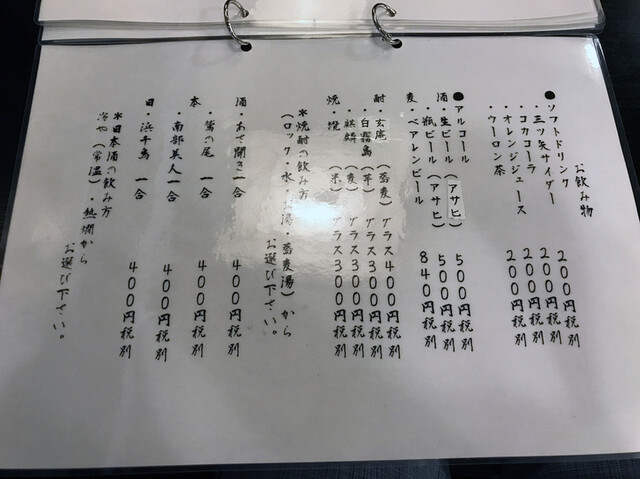 お飲み物
●ソフトドリンク
・三ツ矢サイダー 200円税別
・コカコーラ 200円税別
・オレンジジュース 200円税別
・ウーロン茶 200円税別
●アルコール
酒・生ビール(アサヒ) 500円税別
・瓶ビール(アサヒ) 500円税別
麦・ベアレンビール 840円税別
酎・玄庵(蕎麦)グラス400円税別
・白霧島(芋)グラス300円税別
・麒麟(麦)グラス300円税別
焼・㯃(米)グラス300円税別
※焼酎の飲み方
(ロック・水・お湯・蕎麦湯)から
お選び下さい。
酒・あさ開き 一合 400円税別
・鷲の尾 一合 400円税別
本・南部美人 一合 400円税別
日・浜千鳥 一合 400円税別
※日本酒の飲み方
冷や(常温)・熱燗から
お選び下さい。